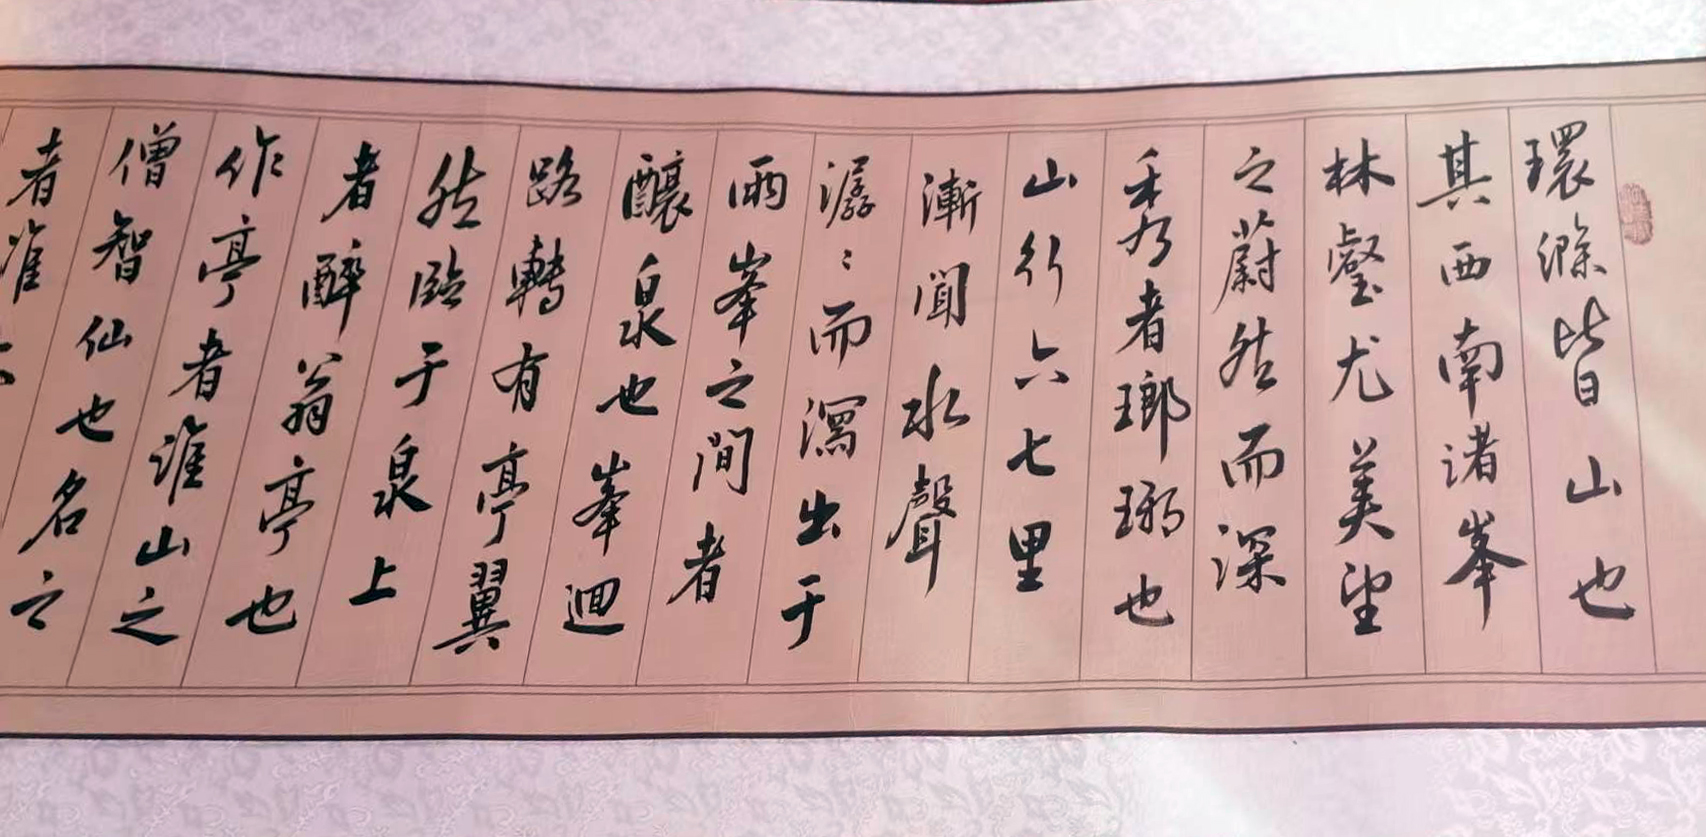 環滁皆山也
其西南諸峯
林壑尤美望
之蔚然而深
秀者瑯琊也
山行六七里
漸聞水聲
潺〻而瀉出于
兩峯之間者
釀泉也峯迴
路轉有亭翼
然臨于泉上
者醉翁亭也
作亭者誰山之
僧智仙也名之
者誰